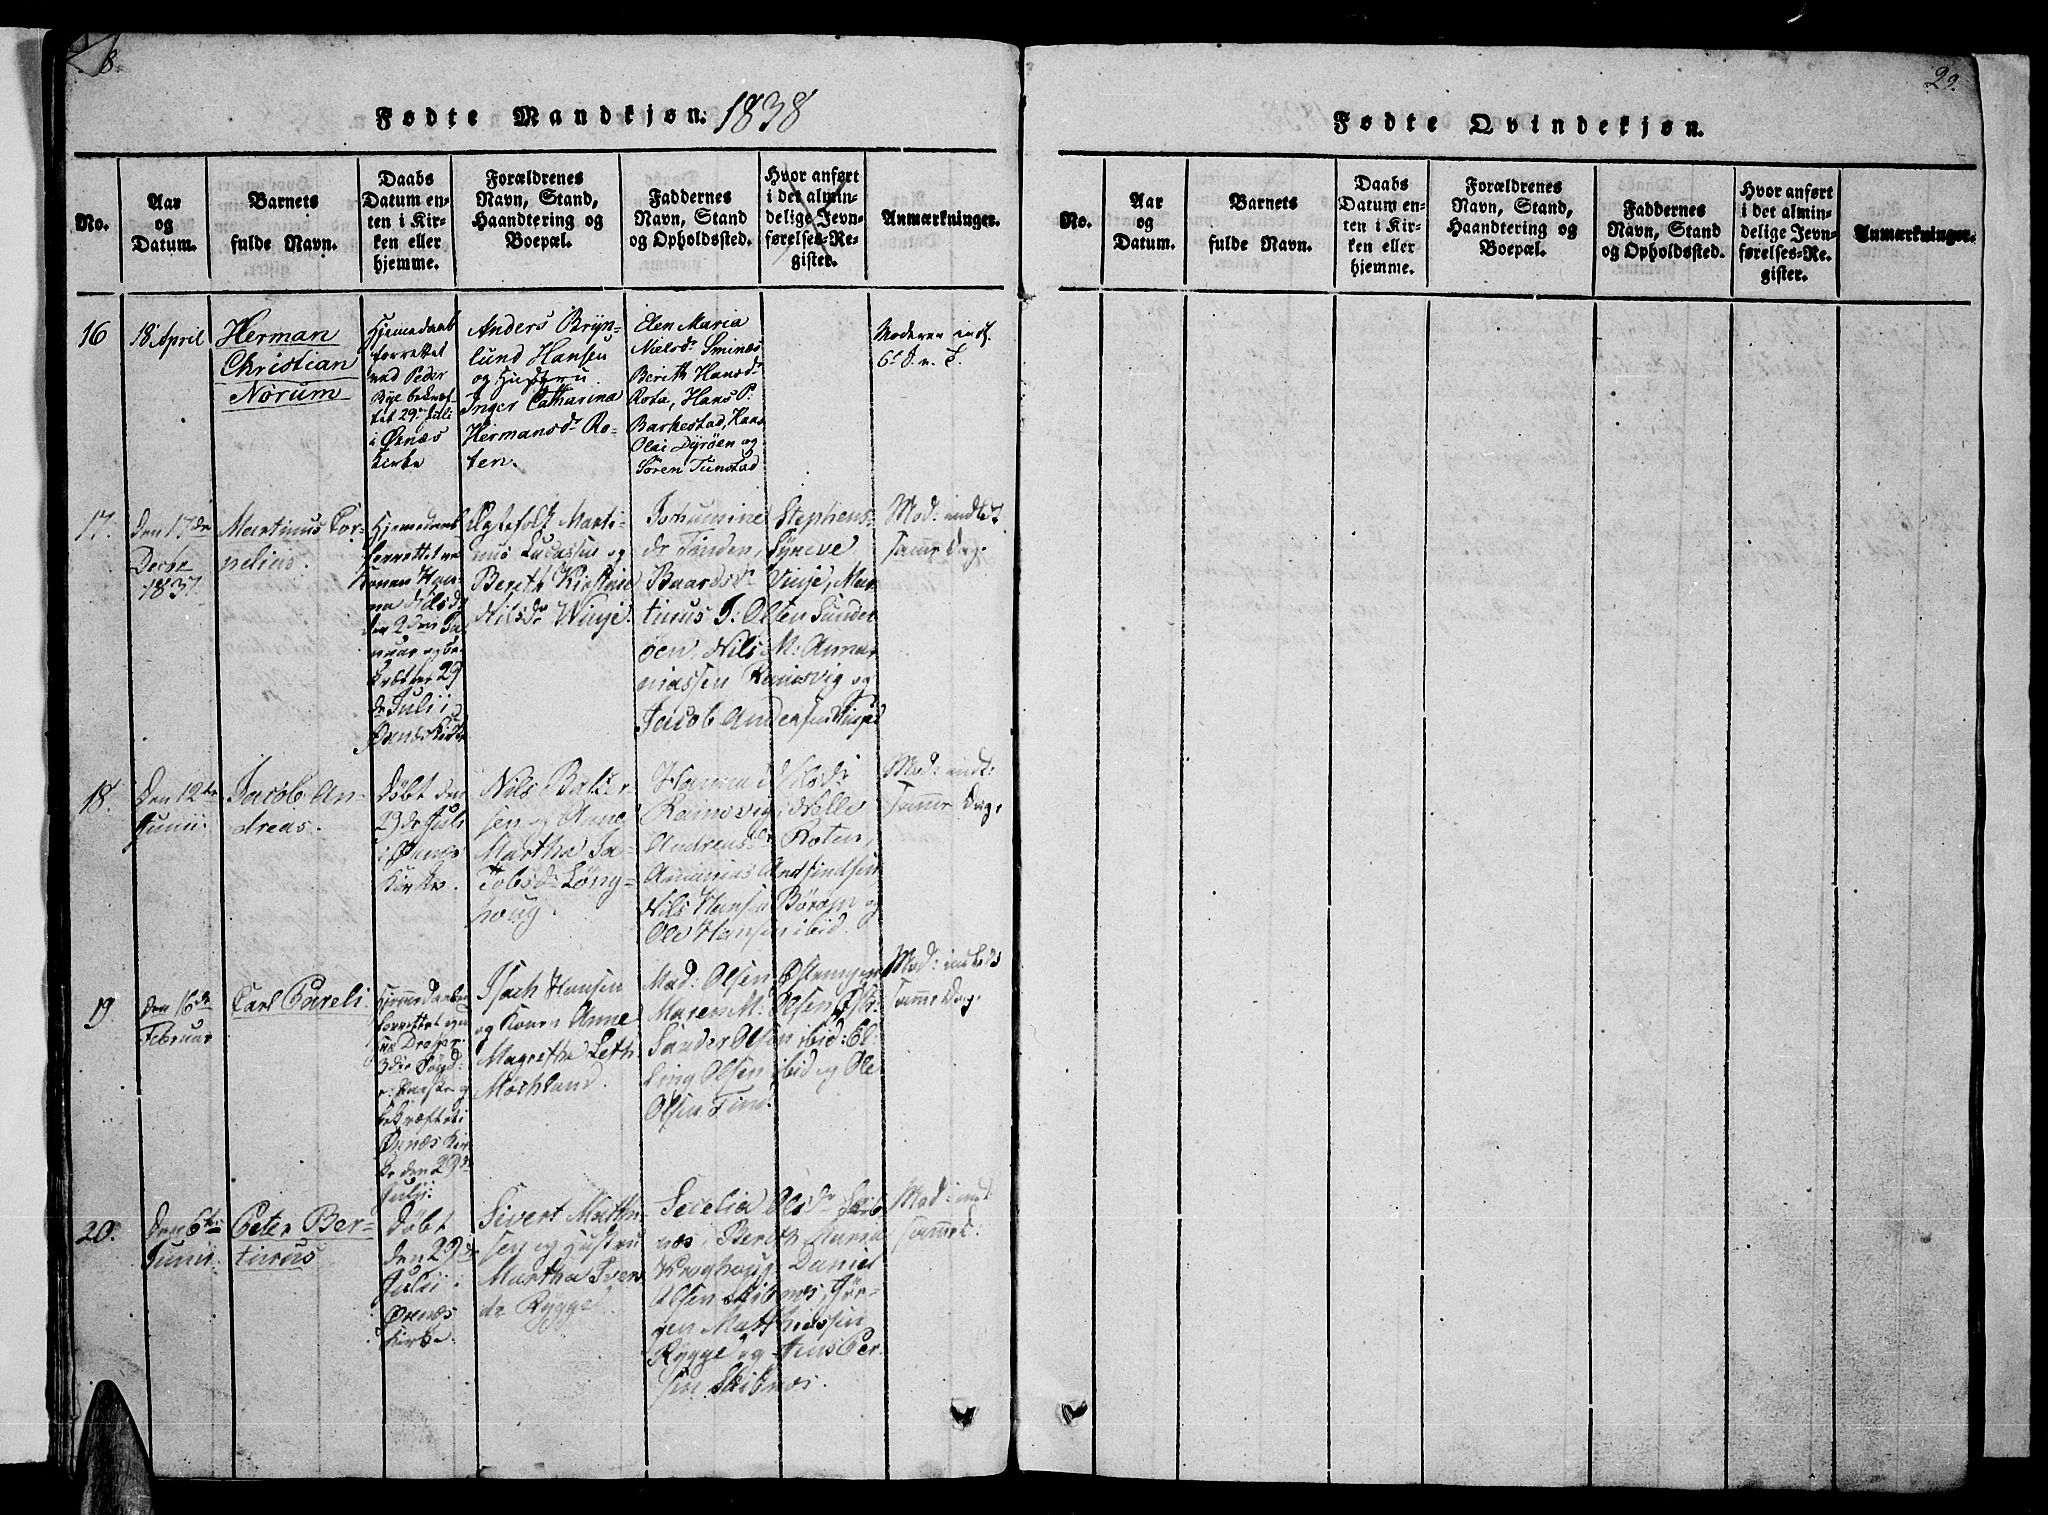 8.
Fødte Mandkjøn. 1838
No.
Aar
og
Datum.
Barnets
fulde Navn.
Daabs
Datum en-
ten i Kir-
ken eller
hjemme.
Forældrenes
Navn, Stand,
Haandtering og
Boepæl.
Faddernes
Navn, Stand
og Opholdssted.
Hvor anført
i det almin-
delige Jevn-
førelses-Re-
gister.
Anmærkninger.
16
18 April
Herman
Christian
Norum
Hjemedaab
forrettet
ved Peder
Bye bekræf-
tet 29 Juli
i Øxnæs
Kirke
Anders Bryn-
lund Hansen
og Hustru
Inger Catharina
Hermansdr Ro-
ten.
Elen Maria
Nielsdr Sminæs
Berith Hansdr
Rota, Hans P.
Barkestad, Hans
Olai Dyrøen og
Søren Tunstad
Moderen indl.
17.
Den 17de
Decbr
1837.
Martinus Cor-
nelius.
Hjemedaab
forrettet
Konen Han-
na Nilsdr
den 2den Ja-
nuar og be-
kræftet 29
de Julii i
Øxnæs Kirke
Ægtefolk Marti-
nus Lucassen og
Bereth Kirstine
Nilsdr Winje.
Jorhumine Stephens-
dr Tinden, Syneve
Baardsdr Vinje, Mar
tinus J: Olsen Sunder
øen, Nils M: Anna
niassen Ramsvig og
Jacob Andersen
Mod: indledt
samme Dag.
18.
Den 12te
Junii.
Jacob An-
dreas.
Døbt den
29de Juli
i Øxnæs
Kirke.
Nils Balzer-
sen og Anne
Martha Ja-
cobsdr Løng-
houg.
Hanna Nilsdr
Ramsvig, Nille
Andreasdr Roten,
Ananias Andfindsen
Nils Hansen Børøen og
Ole Hansen ibid.
Mod: indt:
samme Dag.
19.
Den 16de
Februar
Carl Careli
Hjemmedaaben
forrettet
3die Sønd:
Faste og
bekræftet i
Øxnæs Kir-
ke den 29de
Julii.
Isach Hansen
og Konen Anne
Magretha Leth
Mochland.
Mad: Olsen
Maren M: Olsen
Sander Olsen ibid: El-
ling Olsen ibid og Ole
Olsen Tind.
Mod: indleds
samme Dag.
20.
Den 6te
Junii
Peter Ber-
tinus
Døbt
den 29de
Julii i
Øxnæs
Kirke.
Sivert Math-
sen og Hustru
Martha Iver
dr Rygge.
Secelia Olsdr Skib
næs, Bereth Maria
Kroghoug, Daniel
Olsen Skibnæs, Jør-
gen Matthiessen
Rygge og Jens Per-
sen Skibnæs.
Mod: indl
samme D:
29.
Fødte Qvindekjøn.
No.
Aar
og
Datum.
Barnets
fulde Navn.
Daabs
Datum en-
ten i Kir-
ken eller
hjemme.
Forældrenes
Navn, Stand,
Haandtering og
Boepæl.
Faddernes
Navn, Stand
og Opholdssted.
Hvor anført
i det almin-
delige Jevn-
førelses-Re-
gister.
Anmærkninger.